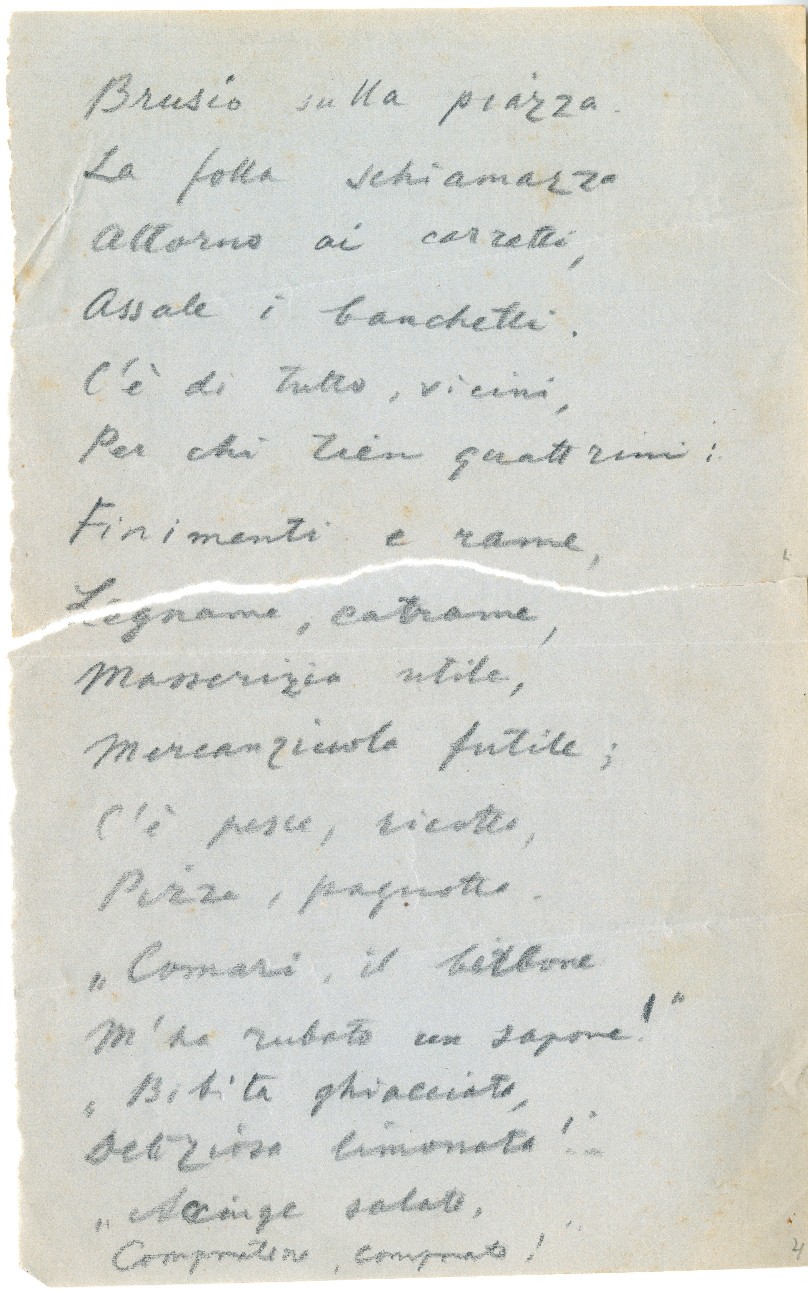 Brusio sulla piazza.
La folla schiamazza
Attorno ai carretti,
Assale i banchetti.
C'è di tutto, vicini,
Per chi tien quattrini:
Finimenti e rame,
Legname, catrame,
Masserizia utile,
Mercanziuola futile;
C'è pesce, ricotta,
Pizza, pagnotta.
„Comari, il birbone
M'ha rubato un sapone!"
„Bibita ghiacciata,
Deliziosa limonata!"
„Acciuge salate,
Compratene, comprate!"
4